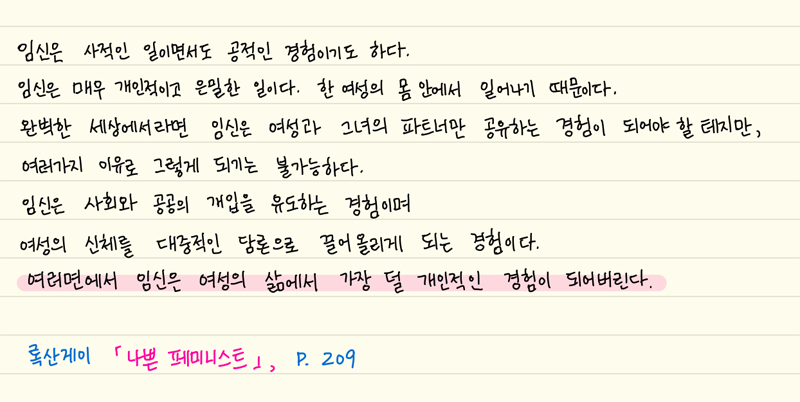 임신은 사적인 일이면서도 공적인 경험이기도 하다.
임신은 매우 개인적이고 은밀한 일이다. 한 여성의 몸 안에서 일어나기 때문이다.
완벽한 세상에서라면 임신은 여성과 그녀의 파트너만 공유하는 경험이 되어야 할 테지만,
여러가지 이유로 그렇게 되기는 불가능하다.
임신은 사회와 공공의 개입을 유도하는 경험이며
여성의 신체를 대중적인 담론으로 끌어 올리게 되는 경험이다.
여러면에서 임신은 여성의 삶에서 가장 덜 개인적인 경험이 되어버린다.
록산게이 「나쁜 페미니스트」, P. 209